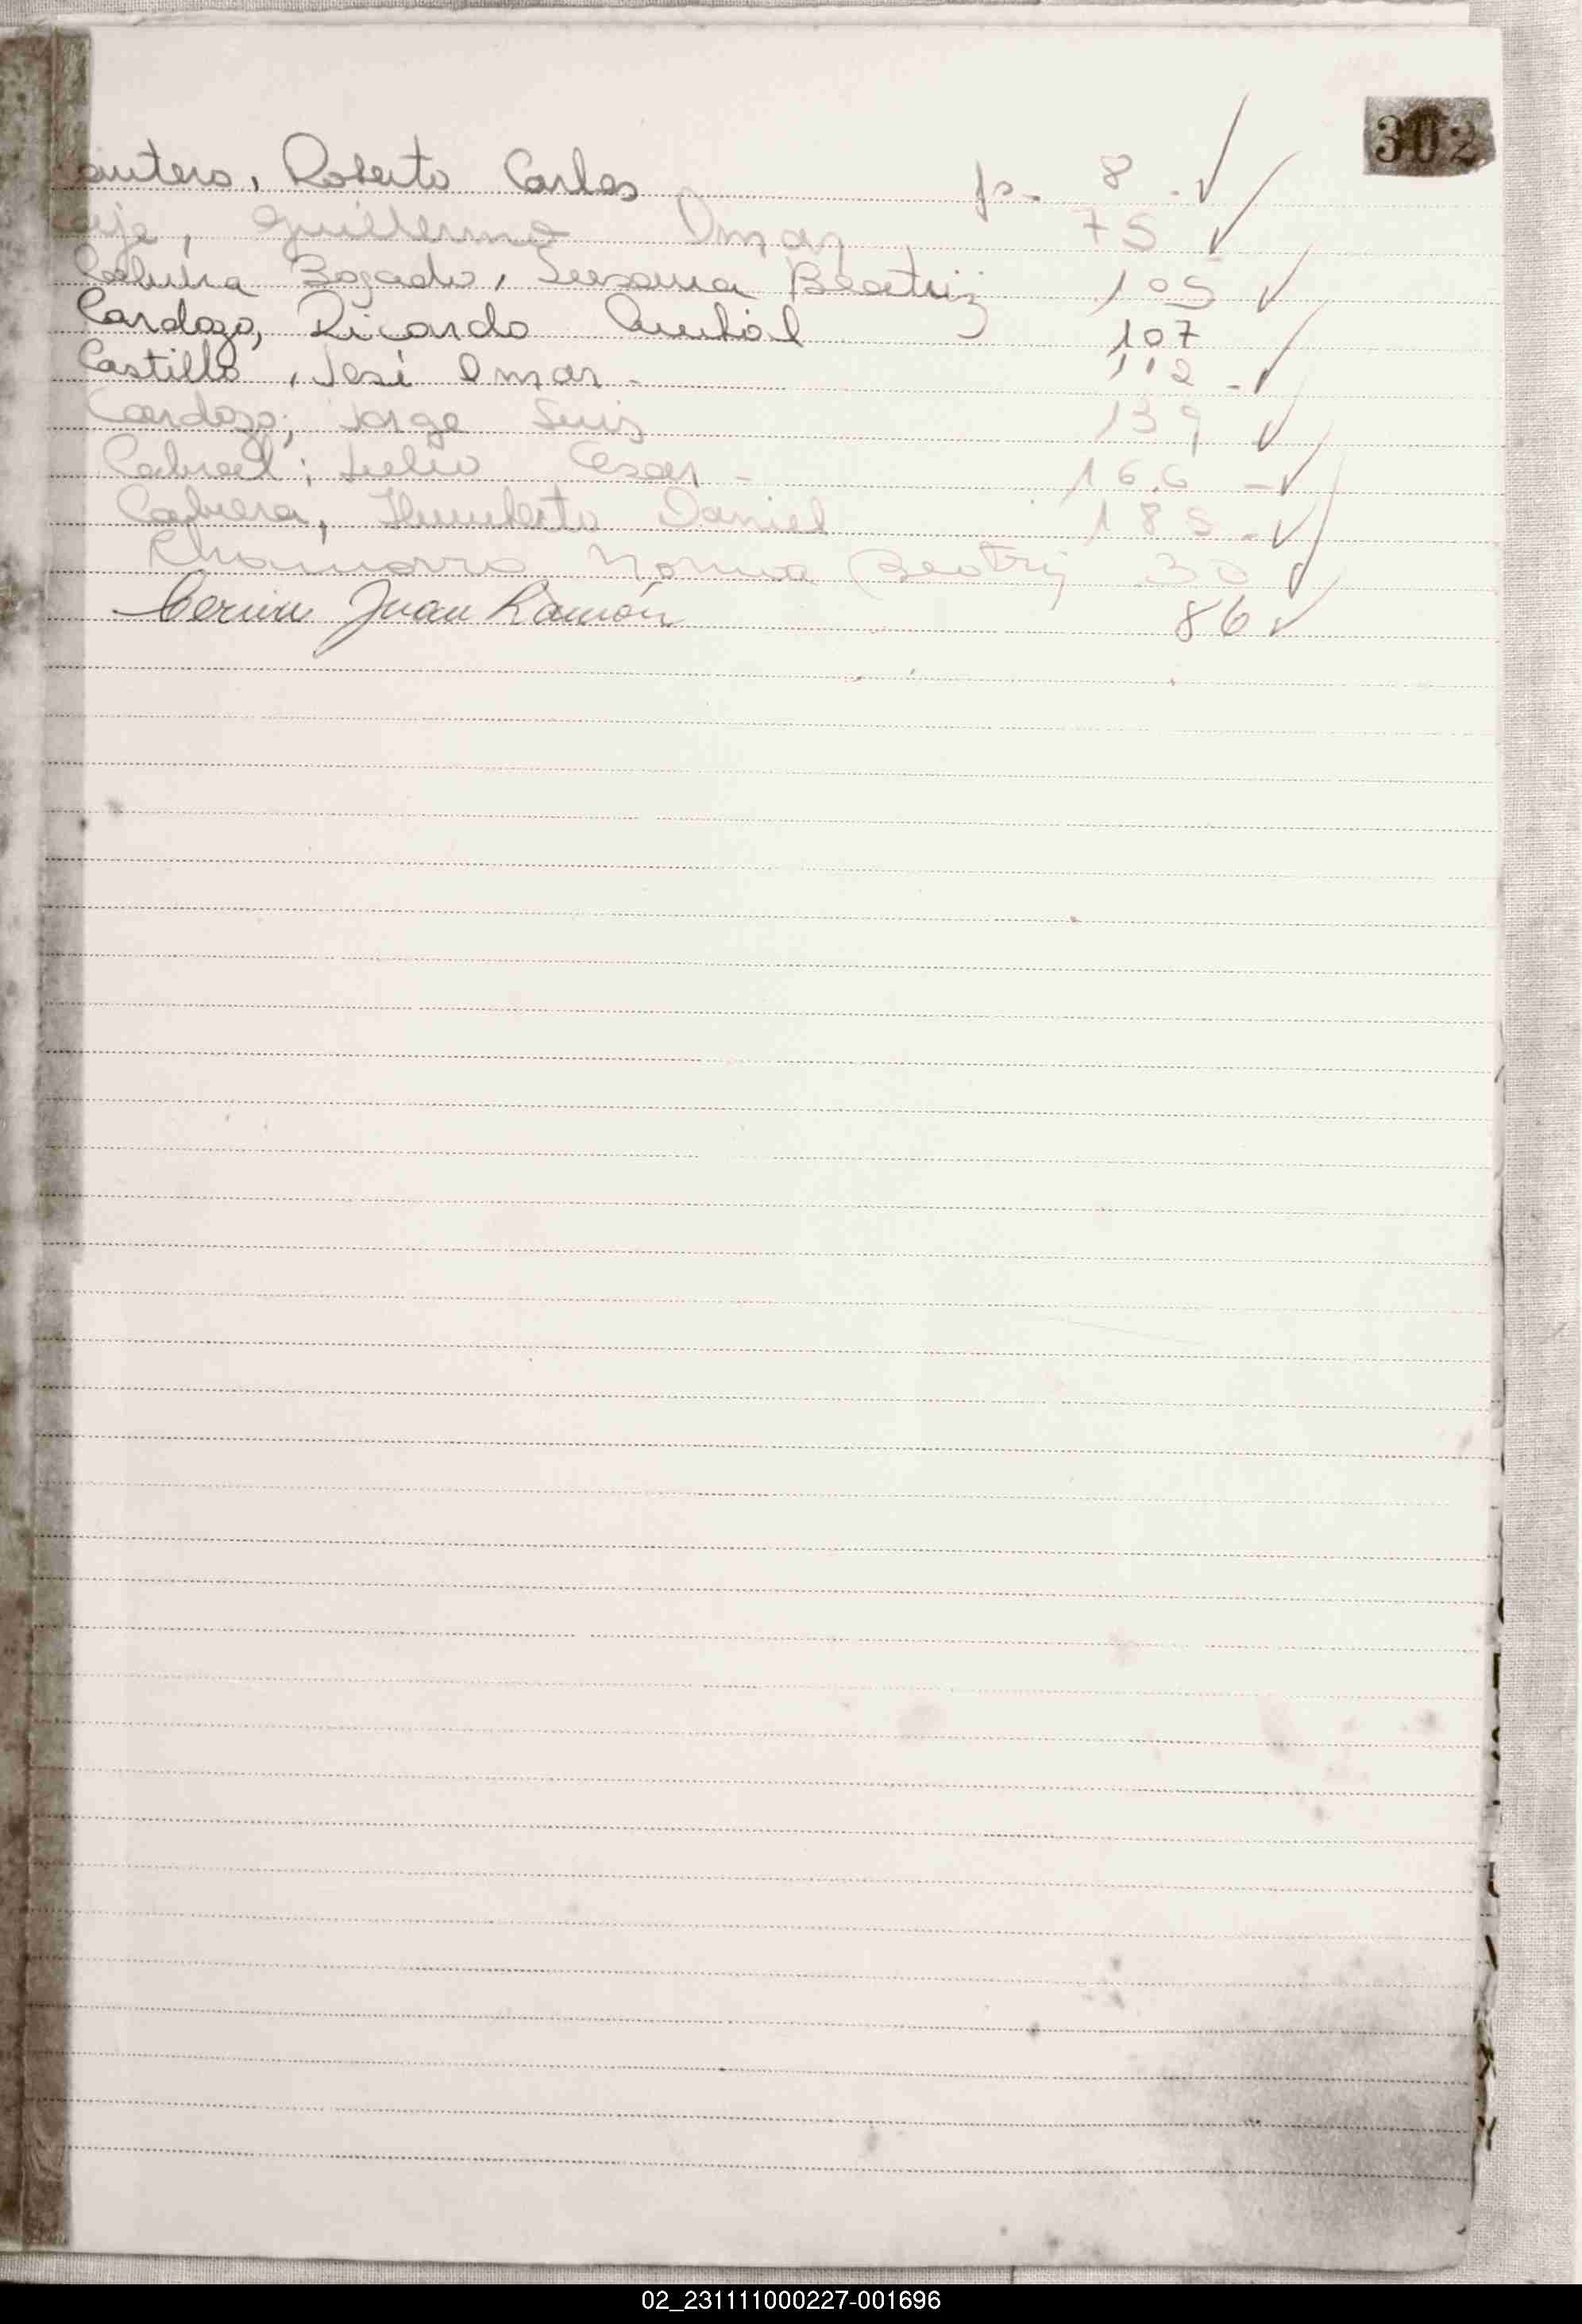 302
antero, Roberto Carlos fs. 8. ✓
eija, Guillermo Omar 75 ✓
Cabrera Bogado, Susana Beatriz 105 ✓
Cardozo, Ricardo Anibal 107
Castillo, José Omar. 112 - ✓
Cardozo; Jorge Luis 139 ✓
Cabral; Julio Cesar - 166 - ✓
Cabrera, Humberto Daniel 185 - ✓
Chamorro Norma Beatriz 30 ✓
Juan Ramón 86 ✓
02_231111000227-001696